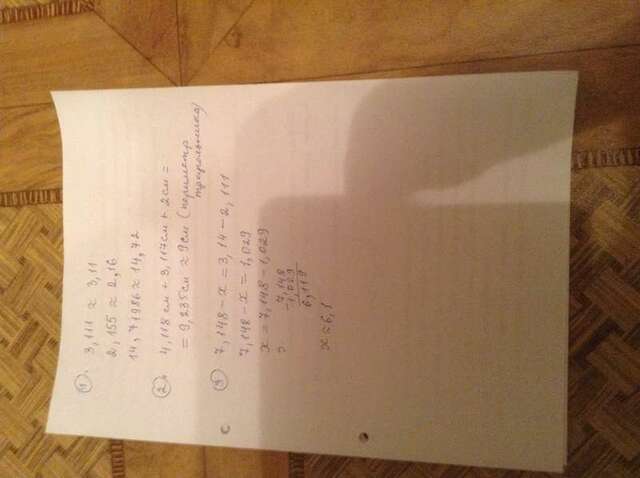 1). 3,111 ≈ 3,11
2,155 ≈ 2,16
14,71986 ≈ 14,72
2). 4,118 см + 3,117 см + 2 см =
= 9,235 см ≈ 9 см (периметр
треугольника)
3) 7,148 - x = 3,14 - 2,111
7,148 - x = 1,029
x = 7,148 - 1,029
7,148
- 1,029
6,119
x ≈ 6,1